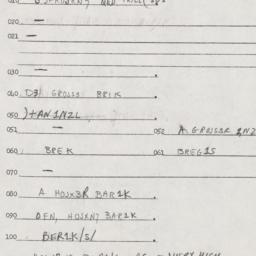 020 —
021 —
030 —
040 D3I GROSS3 BRIK
050 )+AN 1NZL
051 — 052 A GROSS3R 1NZ
060 BREK 061 BREG1S
070 —
080 A HOJX3R BAR1K
090 DEN, HOJXN7 BAR1K
100 BER1K/S/